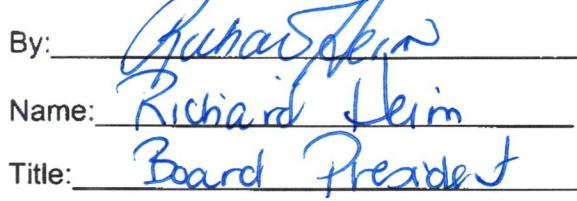 By: Richard Heim
Name: Richard Heim
Title: Board President